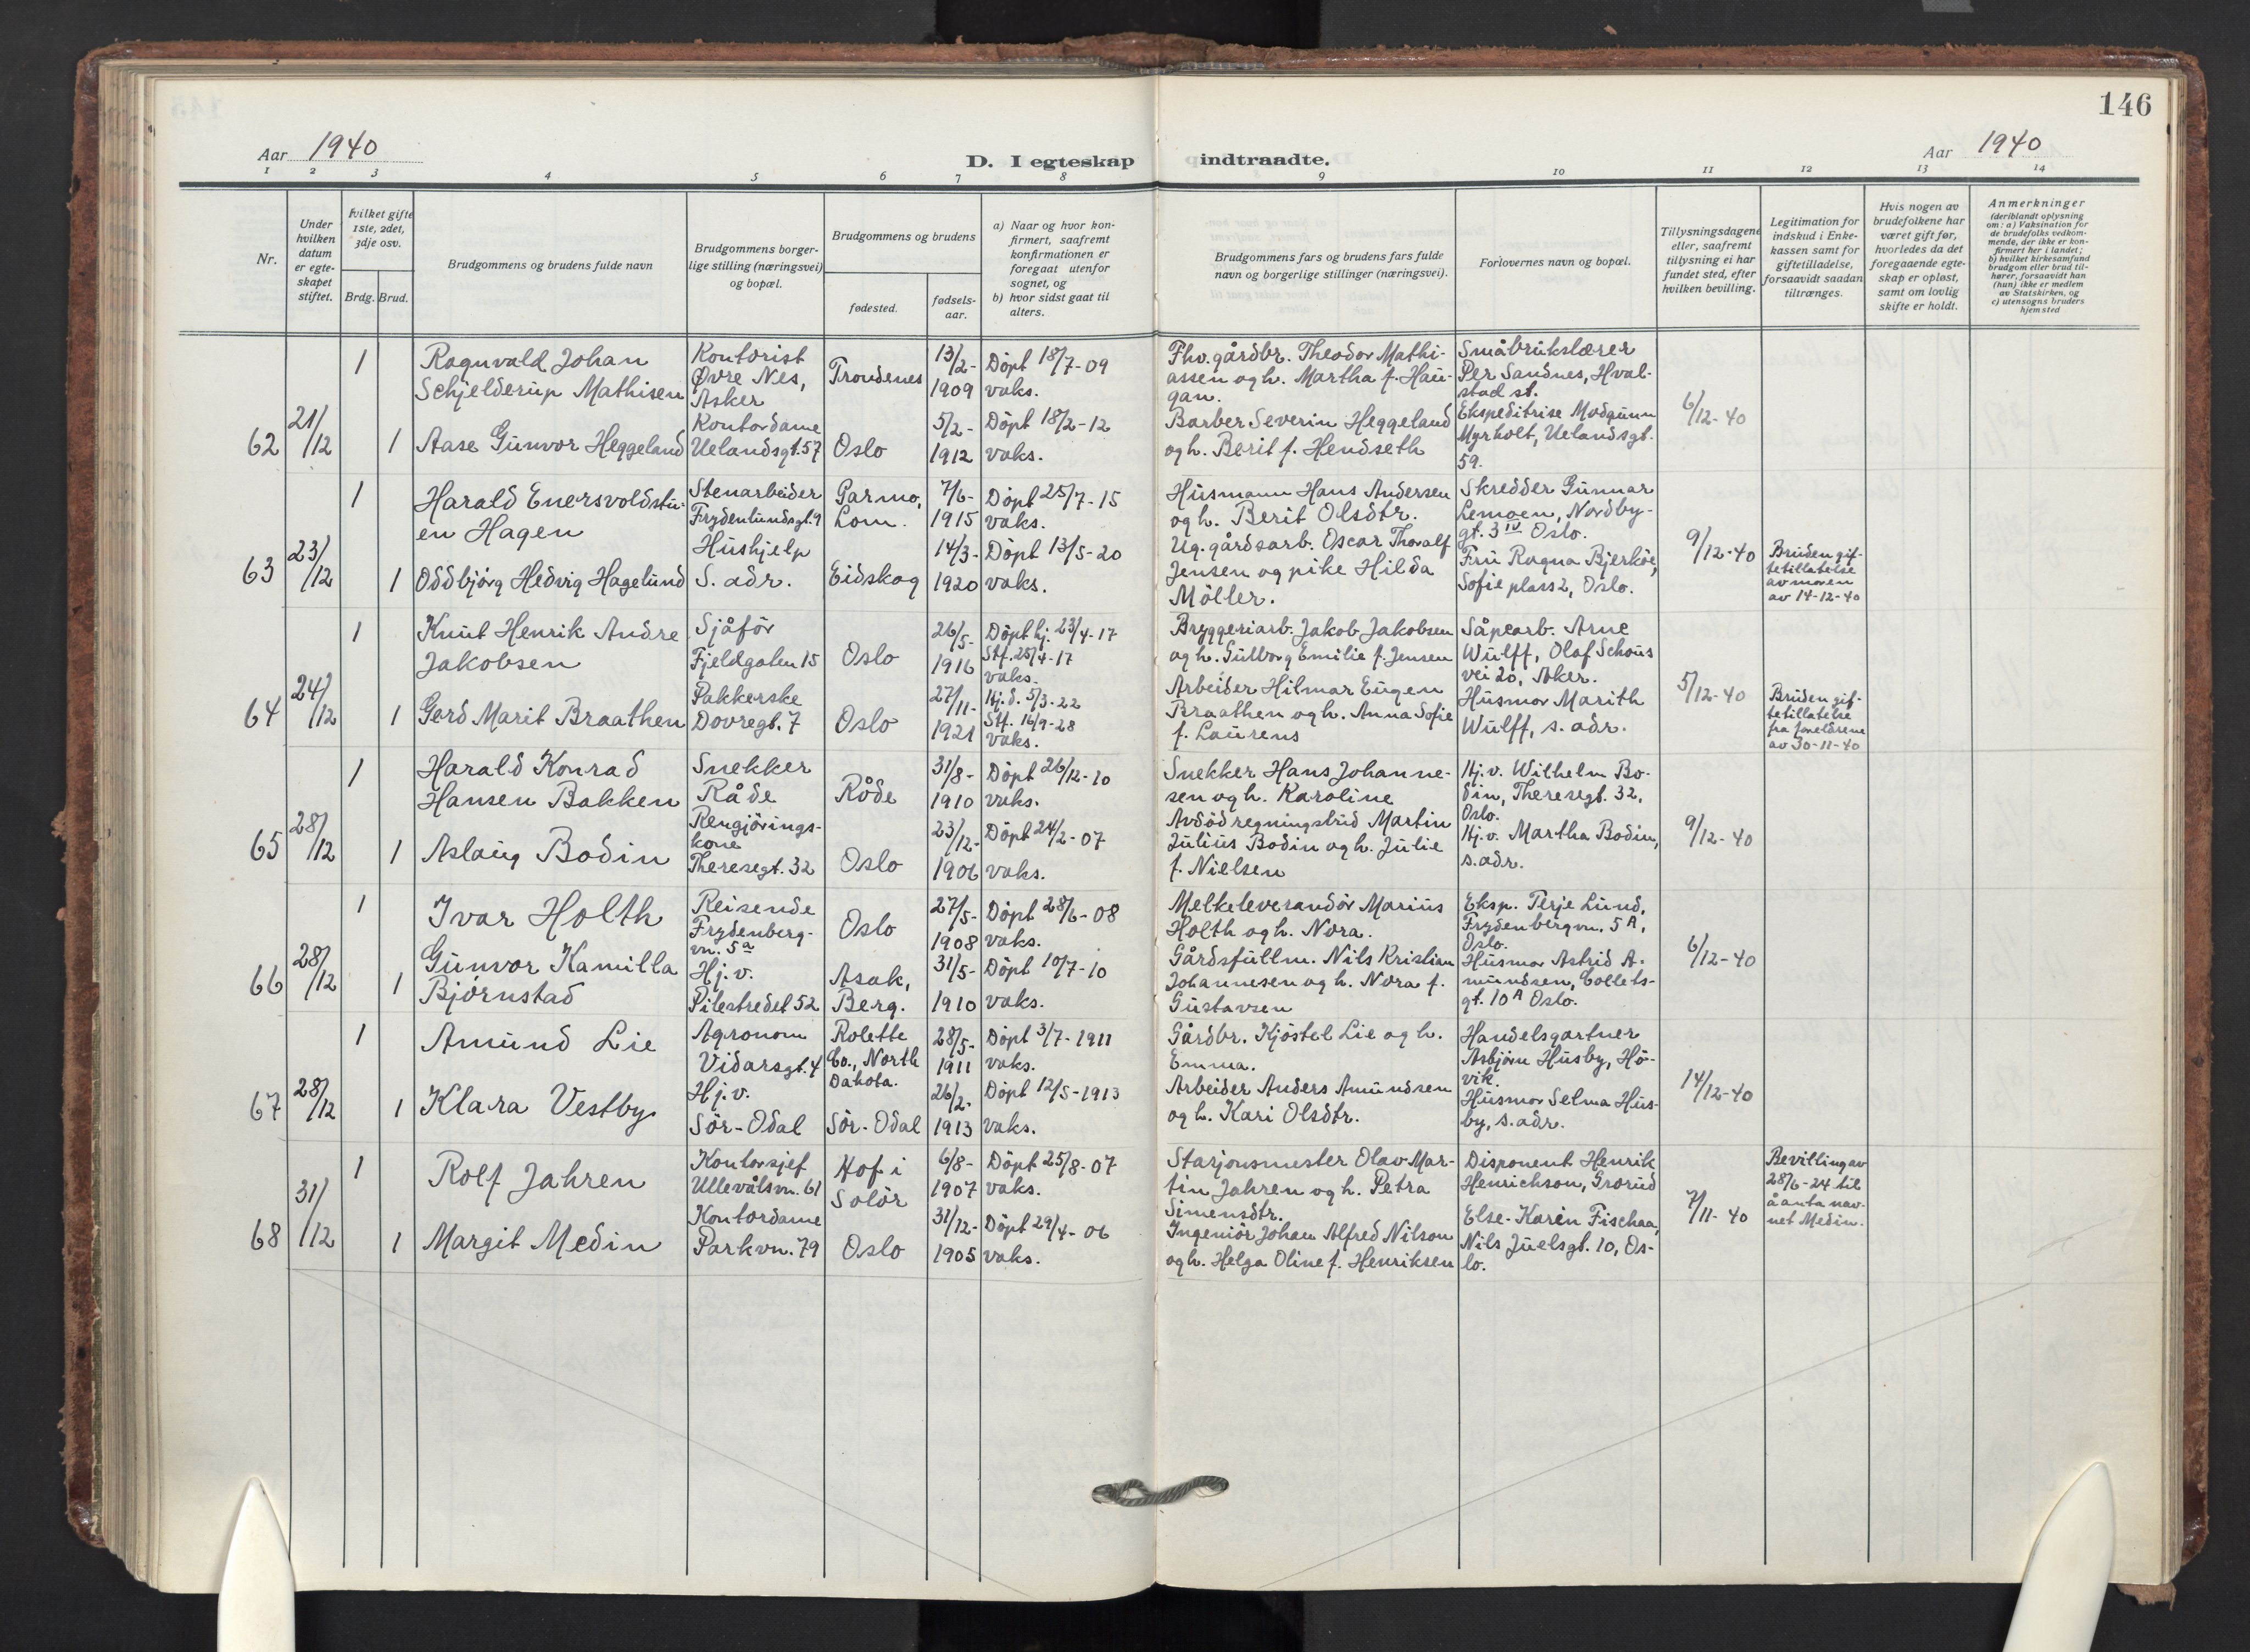 146
Aar 1940
D. I egteskap indtraadte.
Aar 1940
1 2 3 4 5 6 7 8 9 10 11 12 13 14
Nr.
Under
hvilken
datum
er egte-
skapet
stiftet.
hvilket gifte
1ste, 2det,
3dje osv.
Brdg. Brud.
Brudgommens og brudens fulde navn
Brudgommens borger-
lige stilling (næringsvei)
og bopæl.
Brudgommens og brudens
fødested.
fødsels-
aar.
a) Naar og hvor kon-
firmert, saafremt
konfirmationen er
foregaat utenfor
sognet, og
b) hvor sidst gaat til
alters.
Brudgommens fars og brudens fars fulde
navn og borgerlige stillinger (næringsvei).
Forlovernes navn og bopæl.
Tillysningsdagene
eller, saafremt
tillysning ei har
fundet sted, efter
hvilken bevilling.
Legitimation for
indskud i Enke-
kassen samt for
giftetilladelse,
forsaavidt saadan
tiltrænges.
Hvis nogen av
brudefolkene har
været gift før,
hvorledes da det
foregaaende egte-
skap er opløst,
samt om lovlig
skifte er holdt.
Anmerkninger
(deriblandt oplysning
om: a) Vaksination for
de brudefolks vedkom-
mende, der ikke er kon-
firmert her i landet;
b) hvilket kirkesamfund
brudgom eller brud til-
hører, forsaavidt han
(hun) ikke er medlem
av Statskirken, og
c) utensogns bruders
hjemsted
62
21/12
1
Ragnvald Johan
Schjelderup Mathisen
Kontorist
Øvre Nes,
Asker
Trondenes
13/2-
1909
Döpt 18/7-09
vaks.
Fhv. gårdbr. Theodor Mathi-
assen og h. Martha f. Hau-
gan.
Småbrukslærer
Per Sandnes, Hval-
stad st.
6/12-40
1
Aase Gunvor Heggeland
Kontordame
Uelandsgt. 57
Oslo
5/2-
1912
Döpt 18/2-12
vaks.
Barber Severin Heggeland
og h. Berit f. Hendseth
Ekspeditrise Modgunn
Myrholt, Uelandsgt.
59.
63
23/12
1
Harald Enersvoldstu-
en Hagen
Stenarbeider
Frydenlundsgt. 9
Garmo,
Lom.
7/6-
1915
Döpt 25/7-15
vaks.
Husmann Hans Andersen
og h. Berit Olsdtr.
Skredder Gunnar
Lemoen, Nordby-
gt. 3 IV Oslo.
9/12-40
1
Oddbjörg Hedvig Hagelund
Hushjelp
S. adr.
Eidskog
14/3-
1920
Döpt 13/5-20
vaks.
Ug. gårdsarb. Oscar Thoralf
Jensen og pike Hilda
Möller.
Fru Ragna Bjerköe,
Sofie plass 2, Oslo.
Bruden gif-
tetillatelse
av moren
av 14-12-40
64
24/12
1
Knut Henrik Andre
Jakobsen
Sjåför
Fjeldgaten 15
Oslo
26/5-
1916
Döpt hj. 23/4-17
Stf. 25/4-17
vaks.
Bryggeriarb. Jakob Jakobsen
og h. Gulborg Emilie f. Jensen
Såpearb. Arne
Wulff, Olaf Schous
vei 20, Aker.
5/12-40
1
Gerd Marit Braathen
Pakkerske
Dovregt. 7
Oslo
27/11-
1921
Hj. d. 5/3-22
Stf. 16/9-28
vaks.
Arbeider Hilmar Eugen
Braathen og h. Anna Sofie
f. Laurens
Husmor Marith
Wulff, s. adr.
Bruden gif-
tetillatelse
fra foreldrene
av 30-11-40
65
28/12
1
Harald Konrad
Hansen Bakken
Snekker
Råde
Råde
31/8-
1910
Döpt 26/12-10
vaks.
Snekker Hans Johanne-
sen og h. Karoline
Hj. v. Wilhelm Bo-
din, Theresegt. 32,
Oslo.
9/12-40
1
Aslaug Bodin
Rengjörings-
kone
Theresegt. 32
Oslo
23/12-
1906
Döpt 24/2-07
vaks.
Avdöd regningsbud Martin
Julius Bodin og h. Julie
f. Nielsen
Hj. v. Martha Bodin,
s. adr.
66
28/12
1
Ivar Holth
Reisende
Frydenberg-
vn. 5a
Oslo
27/5-
1908
Döpt 28/6-08
vaks.
Melkeleverandör Marius
Holth og h. Nora.
Eksp. Terje Lund,
Frydenbergvn. 5A,
Oslo.
6/12-40
1
Gunvor Kamilla
Björnstad
Hj. v.
Pilestredet 52
Asak,
Berg.
31/5-
1910
Döpt 10/7-10
vaks.
Gårdsfullm. Nils Kristian
Johannesen og h. Nora f.
Gustavsen
Husmor Astrid A-
mundsen, Collets-
gt. 10A Oslo.
67
28/12
1
Amund Lie
Agronom
Vidarsgt. 4
Rolette
Co., North
Dakota.
28/5-
1911
Döpt 3/7-1911
vaks.
Gårdbr. Kjöstel Lie og h.
Emma.
Handelsgartner
Asbjörn Husby, Hö-
vik.
14/12-40
1
Klara Vestby
Hj. v.
Sör-Odal
Sör-Odal
26/2-
1913
Döpt 12/5-1913
vaks.
Arbeider Anders Amundsen
og h. Kari Olsdtr.
Husmor Selma Hus-
by, s. adr.
68
31/12
1
Rolf Jahren
Kontorsjef
Ullevålsvn. 61
Hof i
Solör
6/8-
1907
Döpt 25/8-07
vaks.
Stasjonsmester Olav Mar-
tin Jahren og h. Petra
Simensdtr.
Disponent Henrik
Henrichson, Grorud
7/11-40
Bevilling av
28/6-24 til
å anta nav-
net Medin.
1
Margit Medin
Kontordame
Parkvn. 79
Oslo
31/12-
1905
Döpt 29/4-06
vaks.
Ingeniör Johan Alfred Nilson
og h. Helga Oline f. Henriksen
Else-Karen Fischaa,
Nils Juelsgt. 10, Os-
lo.